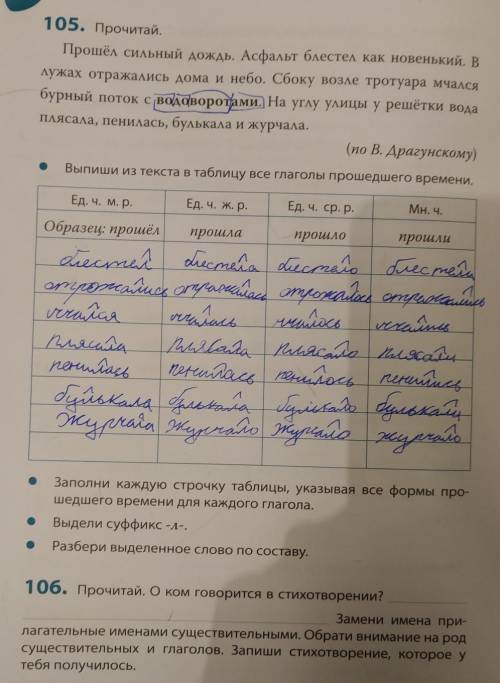 105. Прочитай.
Прошёл сильный дождь. Асфальт блестел как новенький. В
лужах отражались дома и небо. Сбоку возле тротуара мчался
бурный поток с водоворотами. На углу улицы у решётки вода
плясала, пенилась, булькала и журчала.
(по В. Драгунскому)
• Выпиши из текста в таблицу все глаголы прошедшего времени.
Ед. ч. м. р. Ед. ч. ж. р. Ед. ч. ср. р. Мн. ч.
Образец: прошёл прошла прошло прошли
блестел блестела блестело блестели
отрожались отражилась отрожалось отражались
мчался мчалась мчалось мчались
плясала плясала плясало плясали
пенилась пенилась пенилось пенились
булькала булькала булькало булькали
журчала журчало журчало журчало
• Заполни каждую строчку таблицы, указывая все формы про-
шедшего времени для каждого глагола.
• Выдели суффикс -л-.
• Разбери выделенное слово по составу.
106. Прочитай. О ком говорится в стихотворении?
Замени имена при-
лагательные именами существительными. Обрати внимание на род
существительных и глаголов. Запиши стихотворение, которое у
тебя получилось.